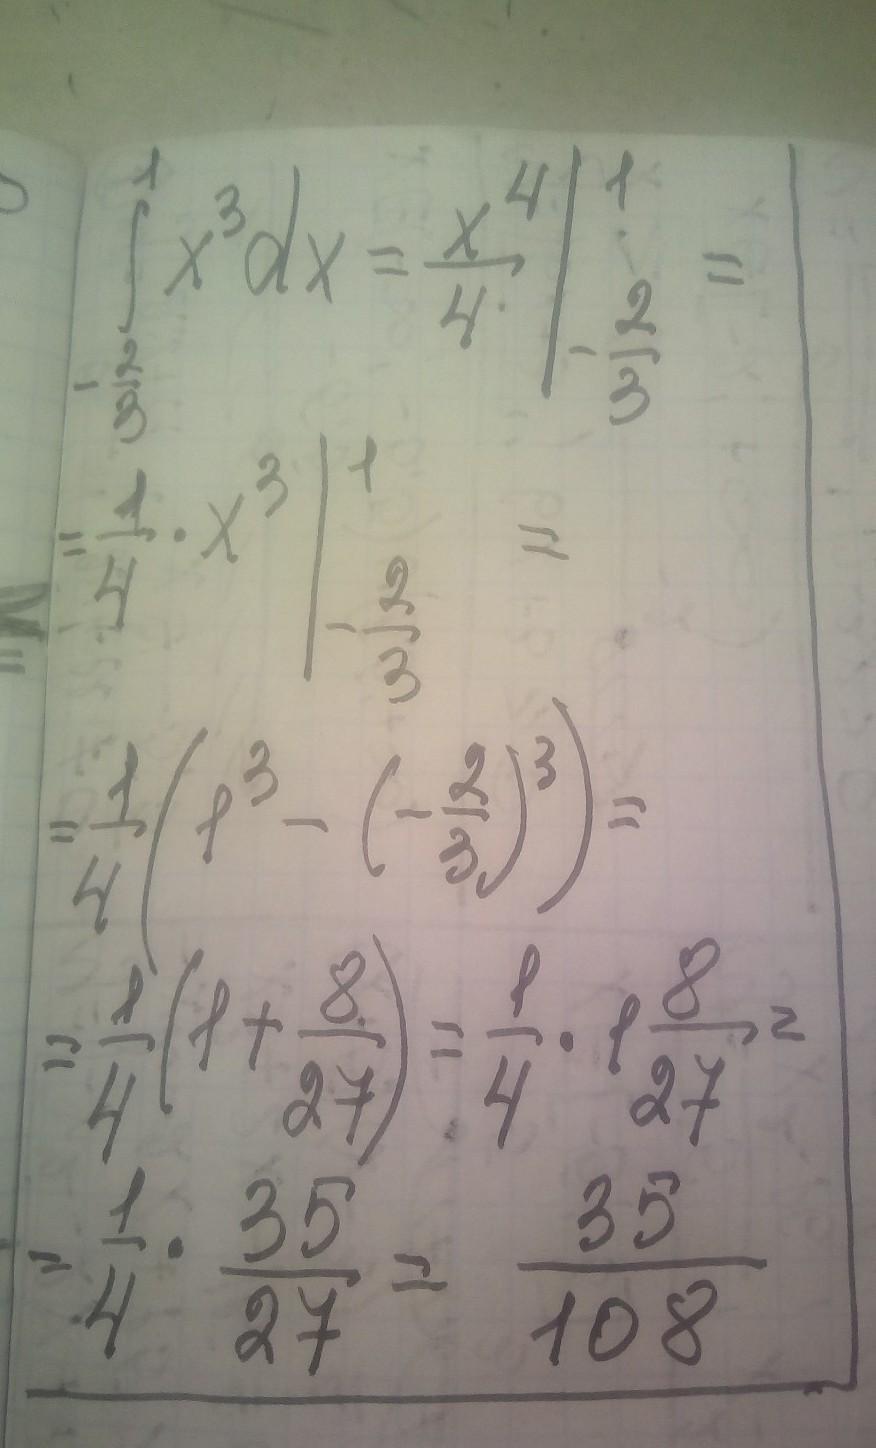 ∫_{-2/3}^{1} x³dx = x⁴/4 |_{-2/3}^{1} =
= 1/4 · x³ |_{-2/3}^{1} =
= 1/4 (1³ - (-2/3)³) =
= 1/4 (1 + 8/27) = 1/4 · 1 8/27 =
= 1/4 · 35/27 = 35/108